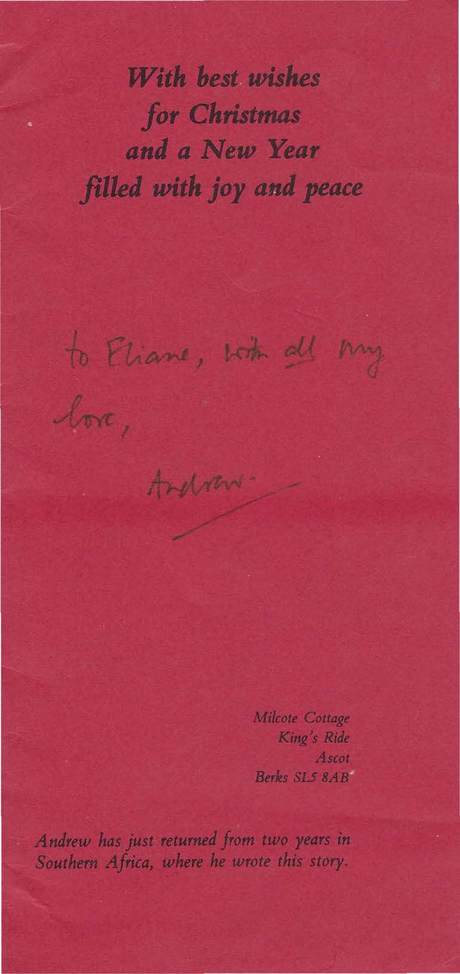 With best wishes
for Christmas
and a New Year
filled with joy and peace
to Eliane, with all my
love,
Andrew.
Milcote Cottage
King's Ride
Ascot
Berks SL5 8AB
Andrew has just returned from two years in
Southern Africa, where he wrote this story.